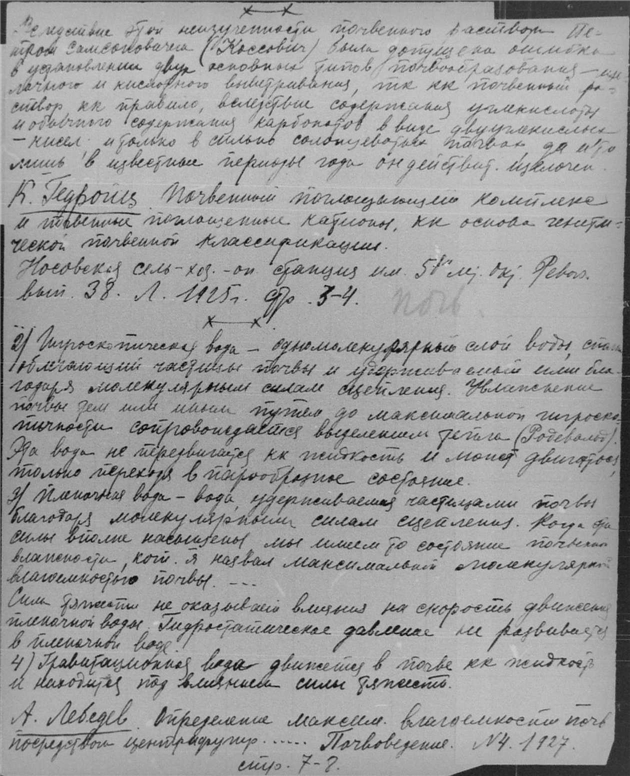 Вследствие этой неизученности почвенного раствора Пе-
тром Самсоновичем (Коссович) была допущена ошибка
в установлении двух основных типов почвообразования – ще-
лочного и кислотного выветривания, тк кк почвенный ра-
створ кк правило, вследствие содержания углекислоты
и обычного содержания карбонатов в виде двууглекислых
– кисл. и только в сильно солонцеватых почвах да и то
лишь в известные периоды года он действит. щелочен.
К. Гедройц Почвенный поглощающий комплекс
и почвенные поглощенные катионы, кк основа генети-
ческой почвенной классификации.
Носовская сель-хоз. оп станция
вып. 38. Л. 1925г. стр. 3-4.
почв.
2) Гигроскопическая вода – одномолекулярный слой воды,
облегающий частицы почвы и удерживаемый ими бла-
годаря молекулярным силам сцепления. Увлажнение
почвы тем или иным путем до максимальной гигроско-
пичности сопровождается выделением тепла (Родевальд).
Эта вода не передвигается кк жидкость и может двигаться,
только переходя в парообразное состояние.
3) Пленочная вода – вода, удерживаемая частицами почвы
благодаря молекулярным силам сцепления. Когда эти
силы вполне насыщены мы имеем то состояние почвенной
влажности, кот. я назвал максимальной молекулярной
влагоемкостью почвы. ---
Сила тяжести не оказывает влияния на скорость движения
пленочной воды. Гидростатическое давление не развивается
в пленочной воде.
4) Гравитационная вода движется в почве кк жидкость
и находится под влиянием силы тяжести.
А. Лебедев. Определение максим. влагоемкости почв
посредством центрифугир...... Почвоведение. N4. 1927.
стр. 7-8.